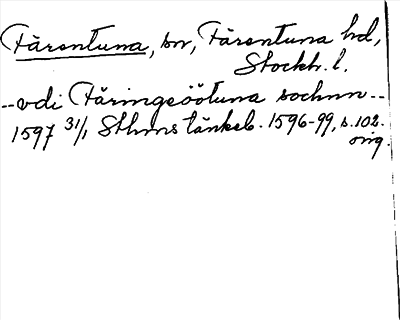 Färentuna, sn, Färentuna hd,
Stockh. l.
--vdi Färingeöötuna sochnn--
1597 31/1 Sthms tänkeb. 1596-99, s. 102.
orig.